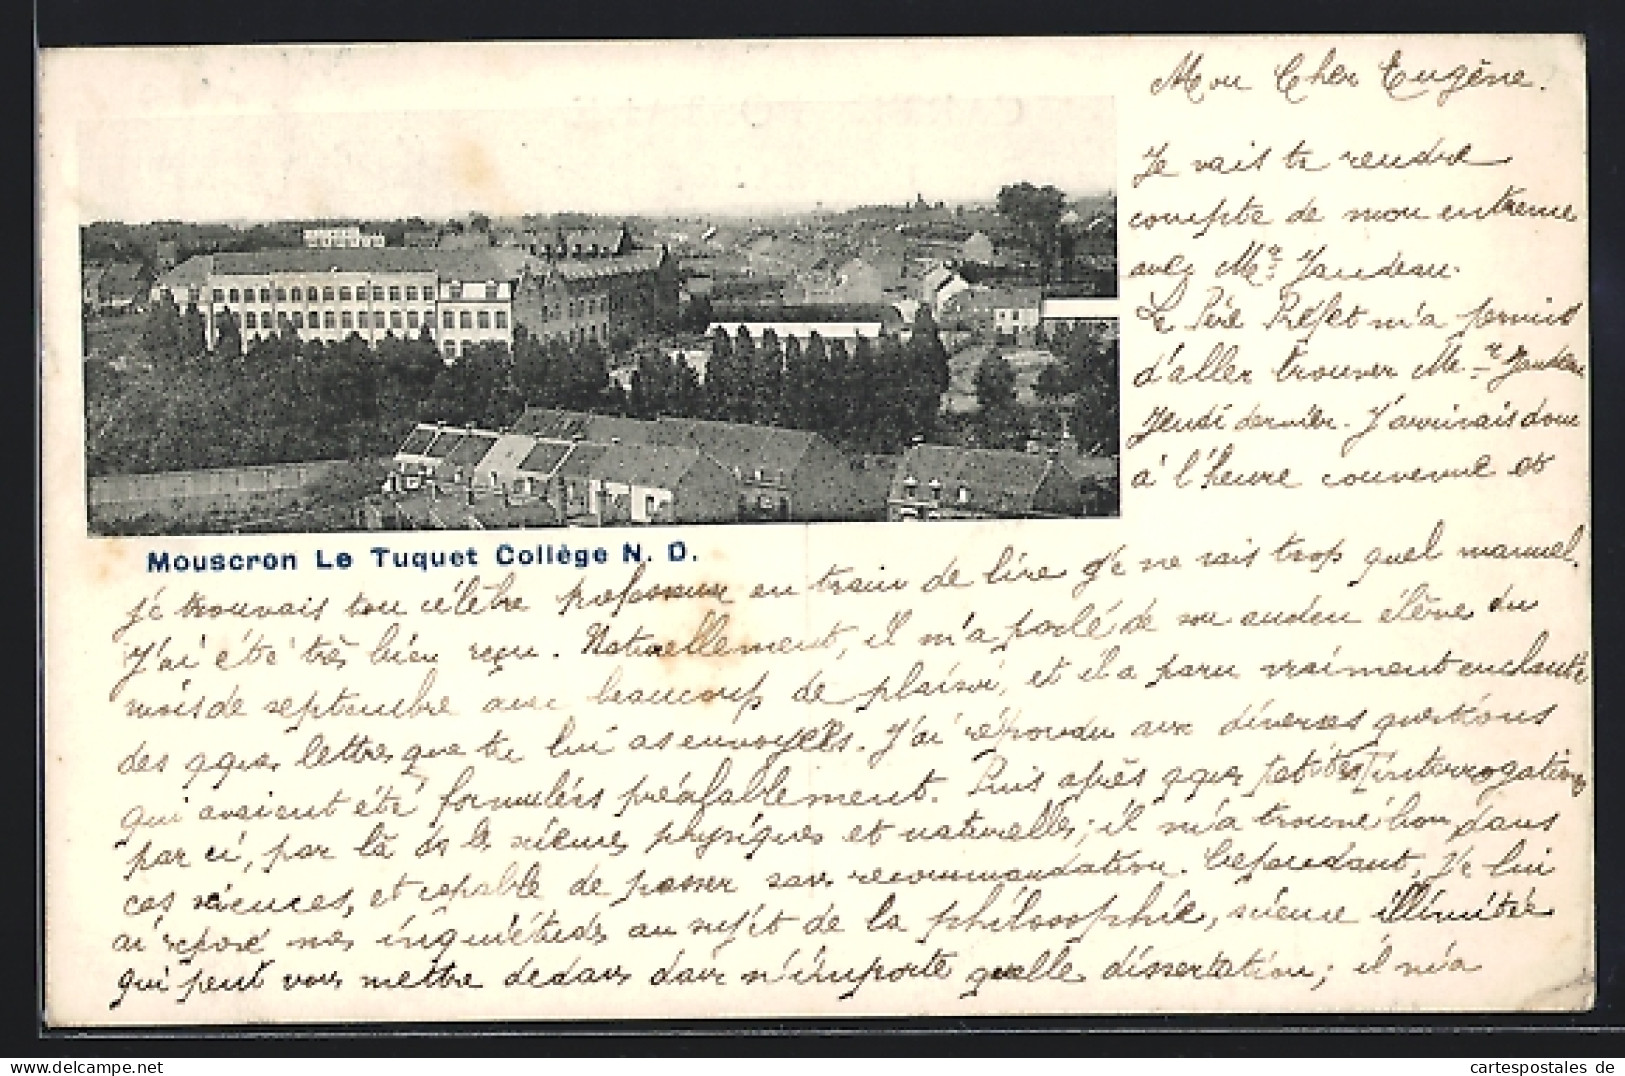 Mon Cher Eugène.
Je vais te rendre
compte de mon entrevue
avec Mr Jandeau.
Le Père Préfet m'a permis
d'aller trouver Mr
Jeudi dernier. J'arrivais donc
à l'heure convenue et
Mouscron Le Tuquet Collège N. D.
je trouvais ton célèbre professeur en train de lire je ne sais trop quel manuel.
J'ai été très bien reçu. Naturellement, il m'a parlé de son ancien élève du
mois de septembre avec beaucoup de plaisir, et il a paru vraiment enchanté
des qques lettres que tu lui as envoyées. J'ai répondu aux diverses questions
qui avaient été formulées préalablement. Puis après qques petites interrogations
par ci, par là ès sciences physiques et naturelles, il m'a trouvé bon dans
ces sciences, et capable de passer sans recommandation. Cependant, je lui
ai exposé mes inquiétudes au sujet de la philosophie, science illimitée
qui peut vous mettre dedans dans n'importe quelle dissertation; il m'a
cartespostales de